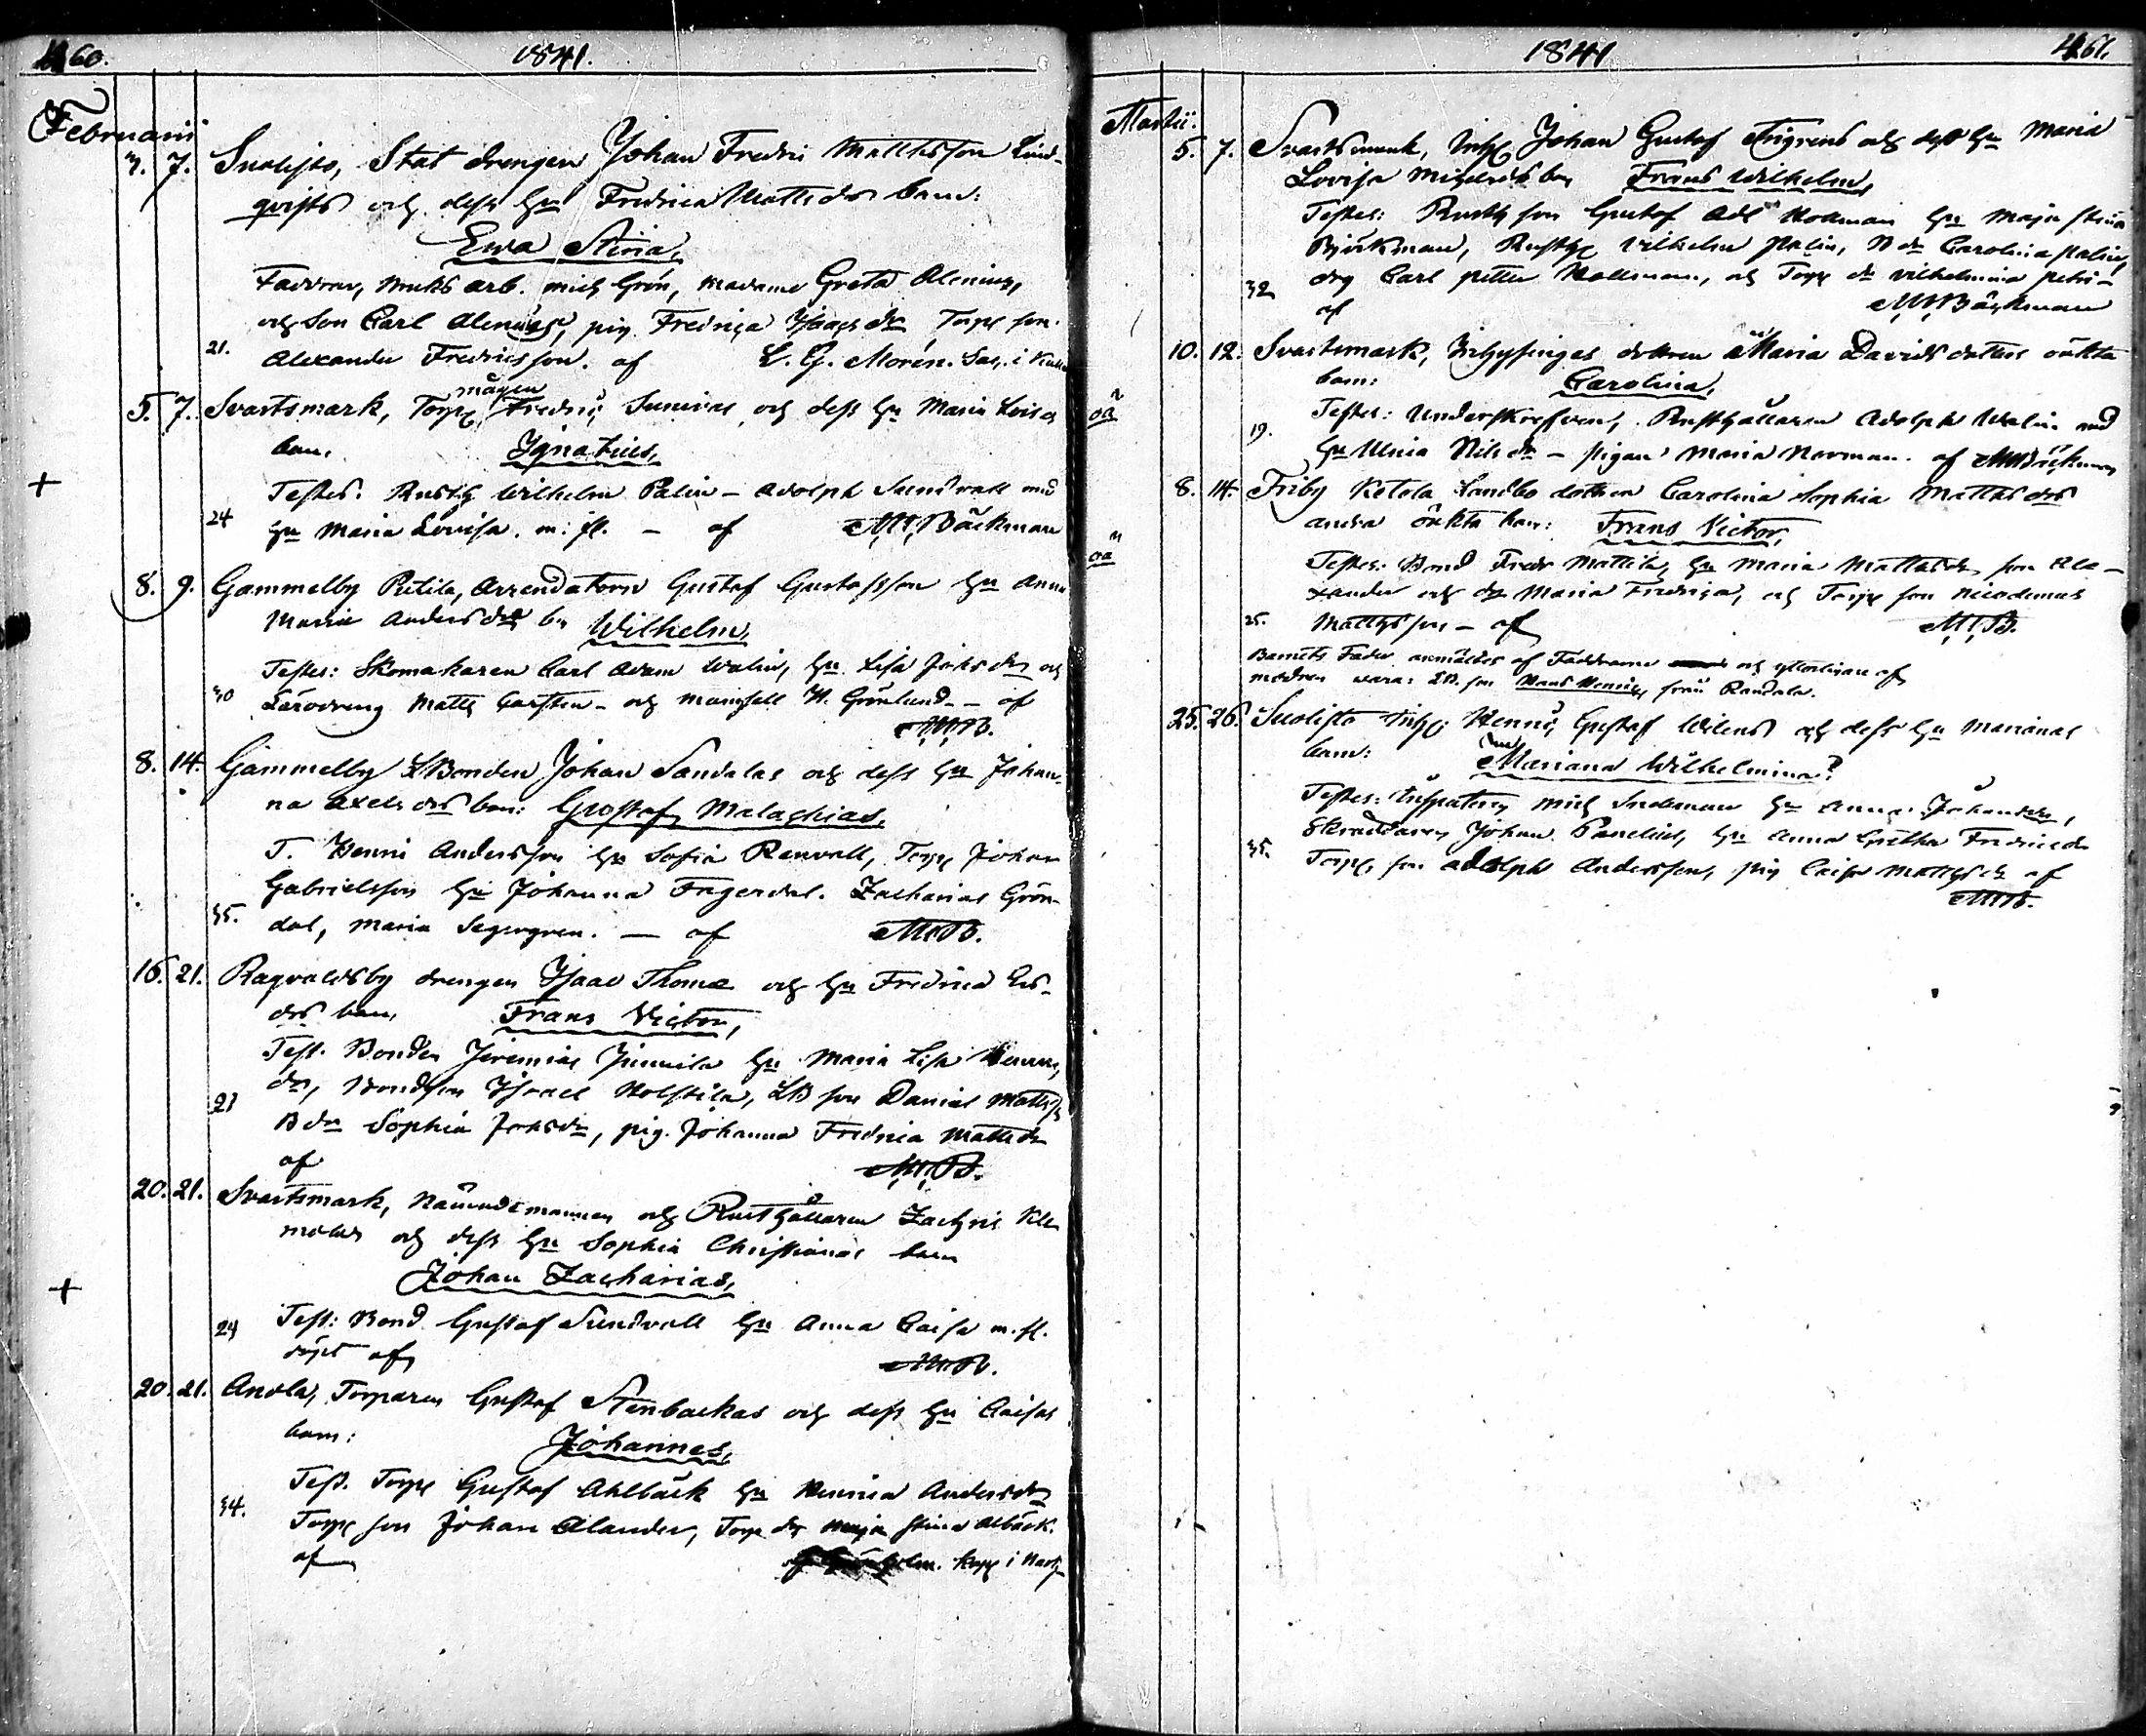 460. 1841.
Februarii
3. 7. Suolisto, Stat drengen Johan Fredric Matthsson Lind-
qvists och dess hu Fredrica Matts drs barn:
Ewa Stina,
Faddrar, Bruks arb. Mich Grön, Madame Greta Alenius,
och Son Carl Alenius, pig. Fredrica Isaacs dr Torp son
21. Alexander Fredricsson. af L. G. Morén. Sac. i
5. 7. Svartsmark, Torp mågen Fredric Sunivas och dess hu Maria Lovisas
barn, Ignatius,
Testes. Rusth Wilhelm Palin – Adolph Sundvall med
24 hu Maria Lovisa. m. fl. – af M. Bäckman
8. 9. Gammelby Putila, Arrendatorn Gustaf Gustafsson hu Anna
Maria Anders drs bn Wilhelm,
Testes: Skomakaren Carl Adam Walin, hu Lisa Johs dr och
30 Lärodreng Matts Carsten – och Mamsell W. Grönlund – af
M. B.
8. 14. Gammelby LBonden Johan Sandelas och dess hu Johan-
na Axels drs barn: Gustaf Malachias,
T. Henric Andersson hu Sofia Renvall, Torp Johan
Gabrielsson hu Johanna Fagerdal. Zacharias Grön-
35. dal, Maria Segergren. – af M. B.
16. 21. Ragvaldsby drengen Isaac Thomæ och hu Fredrica Ers-
drs barn, Frans Victor,
Test. Bonden Jeremias Junnila hu Maria Lisa Henrics
dr, Bondson Israel Holstila, LB son Daniel Mattss
23 B dr Sophia Johsdr, pig. Johanna Fredrica Matts dr
af M. B.
20. 21. Svartsmark, Nämndemannen och Rusthållaren Zachris Kle
molas och dess hu Sophia Christinas barn
Johan Zacharias,
24 Test: Bond Gustaf Sundvall hu Anna Caisa m. fl.
döpt af M. B.
20. 21. Anola, Torparen Gustaf Stenbackas och dess hu Caisas
barn: Johannes,
Test. Torp Gustaf Ahlbäck hu Henrica Andersdr
34. Torp son Johan Alander, Torp dr Maja Stina Albäck.
af i
1841 461.
Martii.
5. 7. Svartsmark, Inh Johan Gustaf Engrens och dess hu Maria
Lovisa Michelsdrs barn Frans Wilhelm,
Testes: Rusth son Gustaf Adl Hollman hu Maja Stina
Björkman, Rusth Vilhelm Palin, B dr Carolina Palin,
32 drg Carl Petter Hollman, och Torp dr Vilhelmina Petri –
af M. Bäckman
10. 12. Svartsmark, Inhysinges dottren Maria Davids dotters oäkta
oä barn: Carolina,
Testes: Underskrefven, Rusthållaren Adolph Walin med
19. hu Ulrica Nils dr – pigan Maria Norrman. af M. Bäckman
8. 14. Friby Ketola Landbo dottren Carolina Sophia Matths drs
oä andra oäkta barn: Frans Victor,
Testes: Bond Fredr Mattila, hu Maria Mattsdr, son Ale-
xander och dr Maria Fredrica, och Torp son Nicodemus
25. Matthsson – af M. B.
Barnets Fader anmäldes af Faddrarne och ytterligare af
modren vara: LB. son Hans Henric från Randala.
25. 26. Suolisto Inh: Henric Gustaf Wilens och dess hu Marianas
barn: Mariana Wilhelmina?
Testes: Inspector Mich Snellman hu Anna Johansdr,
Skräddaren Johan Panelius, hu Anna Gretha Fredricsdr
35. Torp, son Adolph Andersson, pig Caisa Matths dr af
M. B.